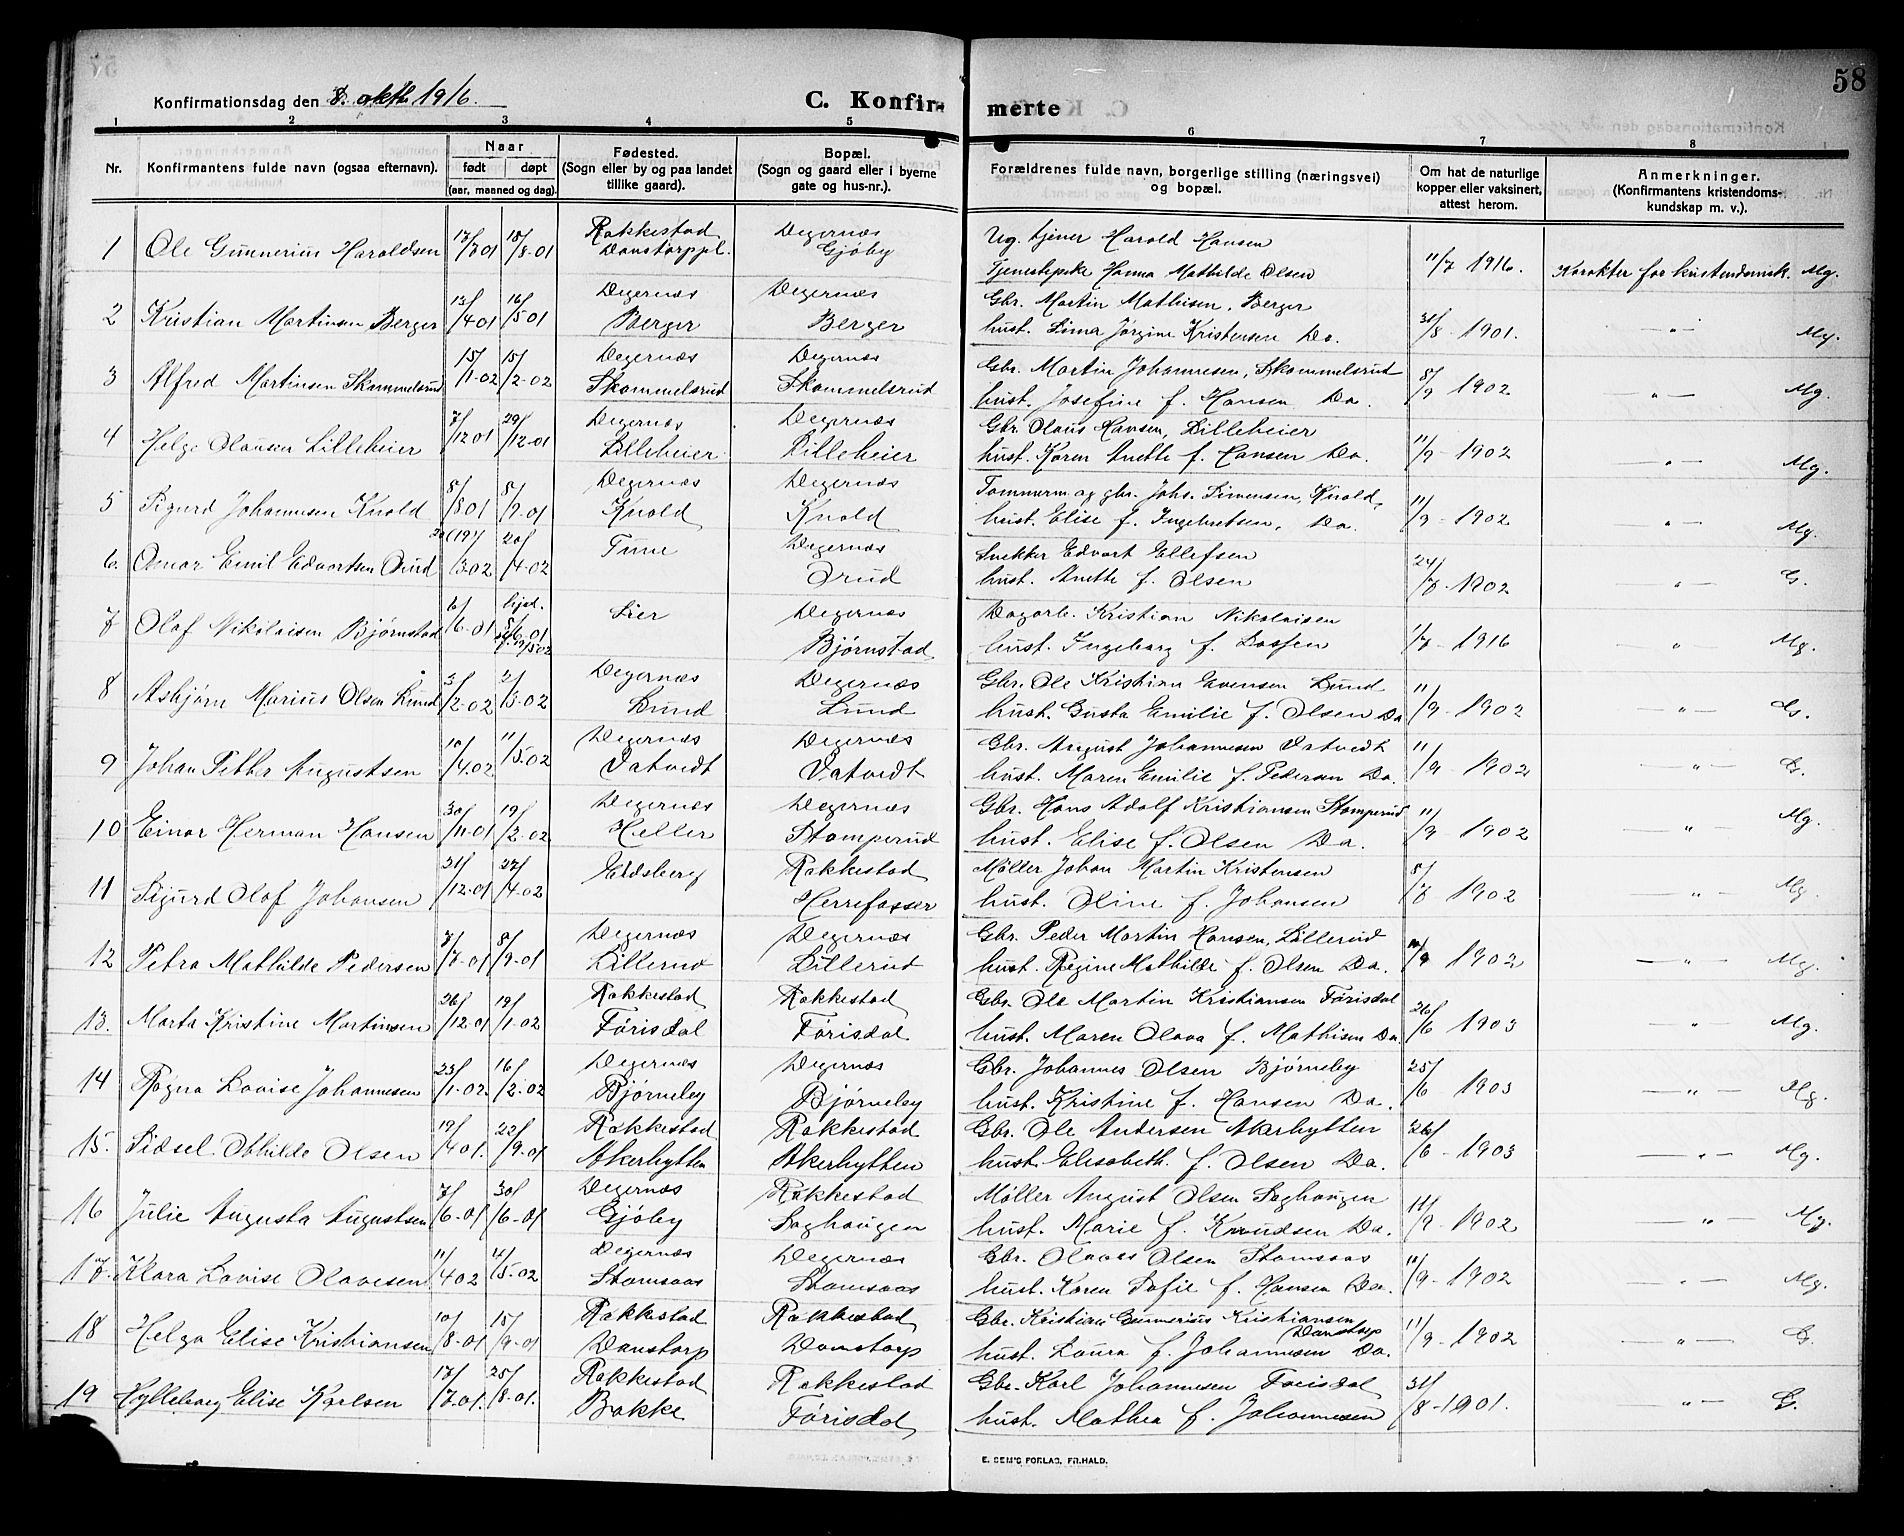 58
Konfirmationsdag den 8. oktb. 1916.
C. Konfirmerte
1 2 3 4 5 6 7 8
Nr. Konfirmantens fulde navn (ogsaa efternavn). Naar født døpt (aar, maaned og dag). Fødested. (Sogn eller by og paa landet tillike gaard). Bopæl. (Sogn og gaard eller i byerne gate og hus-nr.). Forældrenes fulde navn, borgerlige stilling (næringsvei) og bopæl. Om hat de naturlige kopper eller vaksinert, attest herom. Anmerkninger. (Konfirmantens kristendoms-kundskap m. v.).
1 Ole Gunnerius Haraldsen 17/7 01 18/8-01 Rakkestad Danstorppl. Degernæs Gjøby Ug. tjener Harald Hansen
Tjenestepike Hanna Mathilde Olsen 11/7 1916. Karakter for kristendomsk. Mg.
2 Kristian Martinsen Berger 13/4 01 16/5 01 Degernæs Berger Degernæs Berger Gbr. Martin Mathisen, Berger
hust. Lina Jørgine Kristensen Do. 31/8-1901. -"- Mg.
3 Alfred Martinsen Skammelsrud 15/1-02 15/2-02 Degernæs Skammelsrud Degernæs Skammelsrud Gbr. Martin Johannesen, Skammelsrud
hust. Josefine f. Hansen Do. 8/9 1902 -"- Mg.
4 Helge Olausen Lilleheier 7/12 01 29/12-01 Degernæs Lilleheier Degernæs Lilleheier Gbr. Olaus Hansen, Lilleheier
hust. Karen Anette f. Hansen Do. 11/9-1902 -"- Mg.
5 Sigurd Johannesen Knold 8/8 01 8/9-01 Degernæs Knold Degernæs Knold Tømmerm og gbr. Johs. Simensen, Knold,
hust. Elise f. Ingebretsen, Do. 11/9-1902 -"- Mg.
6. Omar Emil Edvartsen Ørud 20(19)/3 02 20/4-02 Tune Degernæs Ørud Snekker Edvart Ellefsen
hust. Anette f. Olsen 24/7-1902 "- G.
7 Olaf Nikolaisen Bjørnstad 6/6-01 hjd. 8/6 01 Lier Degernæs Bjørnstad Dagarb. Kristian Nikolaisen
hust. Ingeborg f. Larsen 1/7-1916 " Mg.
8 Asbjørn Marius Olsen Lund 3/2-02 2/3-02 Degernæs Lund Degernæs Lund Gbr. Ole Kristian Evensen Lund
hust. Gusta Emilie f. Olsen Do 11/9-1902 -"- G.
9 Johan Petter Augustsen 10/4.02 11/5-02 Degernæs Tatvedt Degernæs Tatvedt Gbr. August Johannesen Tatvedt
hust. Maren Emilie f. Pedersen Do. 11/9-1902 -"- G.
10 Einar Herman Hansen 30/11-01 19/2-02 Degernæs Heller Degernæs Stomperud Gbr. Hans Adolf Kristiansen Stomperud
hust. Elise f. Olsen Do. 11/9-1902 -"- Mg.
11 Sigurd Olaf Johansen 21/12-01 27/4-02 Eidsberg Rakkestad Herrefosser Møller Johan Martin Kristensen
hust. Oline f. Johansen 8/7 1902 -"- Mg
12 Petra Mathilde Pedersen 7/7-01 8/9-01 Degernæs Lillerud Degernæs Lillerud Gbr. Peder Martin Hansen, Lillerud
hust. Regine Mathilde f. Olsen Do. 11/9 1902 -"- Mg.
13. Marta Kristine Martinsen 26/12 01 19/1-02 Rakkestad Førisdal Rakkestad Førisdal Gbr. Ole Martin Kristiansen Førisdal
hust. Maren Olava f. Mathisen Do 26/6 1903 -"- Mg.
14 Ragna Lovise Johannesen 23/1-02 16/2-02 Degernæs Bjørneby Degernæs Bjørneby Gbr. Johannes Olsen Bjørneby
hust. Kristine f. Hansen Do. 25/6 1903 -"- Mg.
15. Sidsel Mhilde Olsen 19/4 01. 22/9-01 Rakkestad Akerhytten Rakkestad Akerhytten Gbr. Ole Andersen Akerhytten
hust. Elisabeth. f. Olsen Do. 26/6-1903 -"- Mg.
16 Julie Augusta Augustsen 7/6-01 30/6-01 Degernæs Gjøby Rakkestad Saghaugen Møller August Olsen Saghaugen
hust. Marie f. Knudsen Do. 11/9-1902 "- Mg.
17. Klara Lovise Olavesen 11/4 02 4/5-02 Degernæs Stomsaas Degernæs Stomsaas Gbr. Olaves Olsen Stomsaas
hust. Karen Sofie f. Hansen Do. 11/9-1902 -"- Mg.
18 Helga Elise Kristiansen 10/8-01 15/9-01 Rakkestad Danstorp Rakkestad Danstorp Gbr. Kristian Gunnerius Kristiansen Danstorp
hust. Laura f. Johannesen Do. 11/9-1902 -"- G.
19 Hylleborg Elise Karlsen 17/7-01. 25/8-01. Rakkestad Bakke Rakkestad Førisdal Gbr. Karl Johannesen Førisdal
hust. Mathea f. Johannesen 31/8-1901. -"- G.
E. SEM'S FORLAG, FR.HALD.